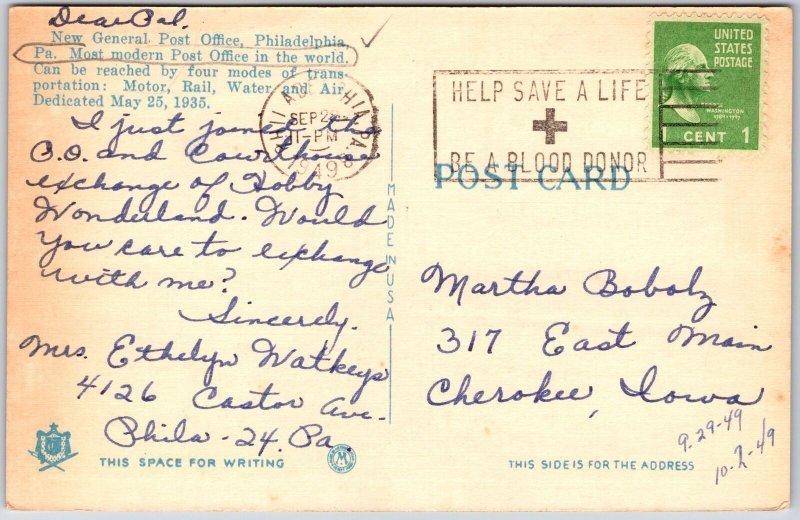 Dear Pal,
New General Post Office, Philadelphia,
Pa. Most modern Post Office in the world.
Can be reached by four modes of trans-
portation: Motor, Rail, Water and Air.
Dedicated May 25, 1935.
I just joined the
P.O. and Courthouse
exchange of Hobby
Wonderland. Would
you care to exchange
with me?
Sincerely.
Mrs. Ethelyn Watkeys
4126 Castor Ave.
Phila - 24. Pa
THIS SPACE FOR WRITING
MADE IN USA
PHILADELPHIA, PA.
SEP 28
11-PM
1949
HELP SAVE A LIFE
BE A BLOOD DONOR
UNITED
STATES
POSTAGE
WASHINGTON
1 CENT 1
POST CARD
Martha Bobolz
317 East Main
Cherokee, Iowa
9-29-49
10-2-49
THIS SIDE IS FOR THE ADDRESS